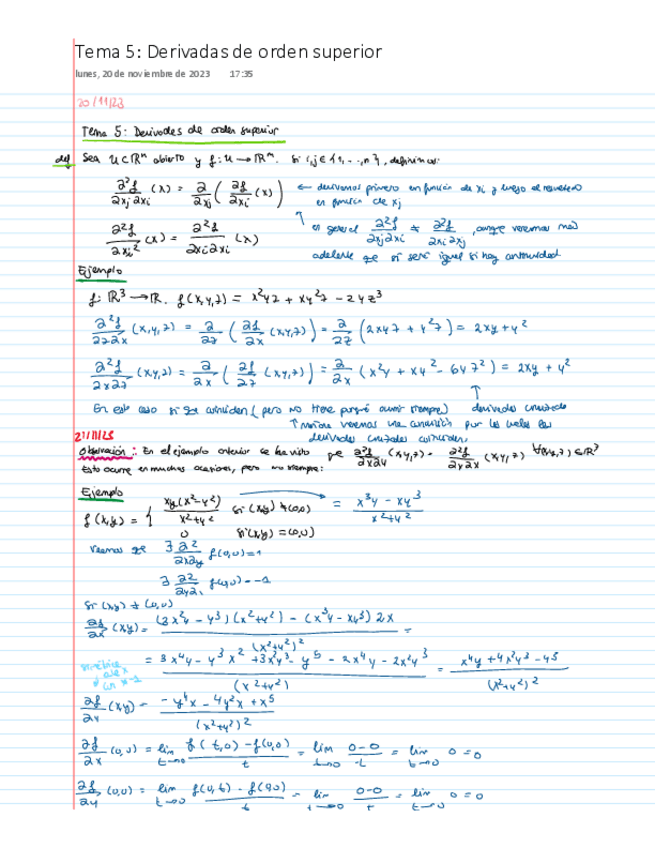 Tema 5: Derivadas de orden superior
lunes, 20 de noviembre de 2023 17:35
20/11/23
Tema 5: Derivadas de orden superior
def Sea U⊂ℝⁿ abierto y f: U → ℝᵐ. Si i,j ∈ {1,...,n}, definimos:
∂²f/∂xj∂xi (x) = ∂/∂xj (∂f/∂xi (x)) ← derivamos primero en función de xi y luego el resultado
en función de xj
∂²f/∂xi² (x) = ∂²f/∂xi∂xi (x) en general ∂²f/∂xj∂xi ≠ ∂²f/∂xi∂xj, aunque veremos más
adelante que sí será igual si hay continuidad
Ejemplo
f: ℝ³ → ℝ. f(x,y,z) = x²yz + xy²z - 2yz³
∂²f/∂z∂x (x,y,z) = ∂/∂z (∂f/∂x (x,y,z)) = ∂/∂z (2xyz + y²z) = 2xy + y²
∂²f/∂x∂z (x,y,z) = ∂/∂x (∂f/∂z (x,y,z)) = ∂/∂x (x²y + xy² - 6yz²) = 2xy + y²
En este caso sí que coinciden (pero no tiene porqué ocurrir siempre) derivadas cruzadas
↑ mañana veremos una condición por las cuales las
derivadas cruzadas coinciden
21/11/23
Observación: En el ejemplo anterior se ha visto que ∂²f/∂x∂y (x,y,z) = ∂²f/∂y∂x (x,y,z) ∀(x,y,z) ∈ ℝ³
Esto ocurre en muchas ocasiones, pero no siempre:
Ejemplo
f(x,y) = { xy(x²-y²)/x²+y² si (x,y) ≠ (0,0) = x³y - xy³/x²+y²
0 si (x,y) = (0,0)
Veamos que ∃ ∂²/∂x∂y f(0,0) = 1
∃ ∂²/∂y∂x f(0,0) = -1
Si (x,y) ≠ (0,0)
∂f/∂x (x,y) = (3x²y - y³)(x²+y²) - (x³y - xy³) 2x/(x²+y²)² =
= 3x⁴y - y³x² + 3x²y³ - y⁵ - 2x⁴y - 2x²y³/(x²+y²) = x⁴y + 4x²y³ - y⁵/(x²+y²)²
∂f/∂y (x,y) = -y⁴x - 4y²x + x⁵/(x²+y²)²
∂f/∂x (0,0) = lim t→0 f(t,0) - f(0,0)/t = lim t→0 0-0/t = lim t→0 0 = 0
∂f/∂y (0,0) = lim t→0 f(0,t) - f(0,0)/t = lim t→0 0-0/t = lim t→0 0 = 0